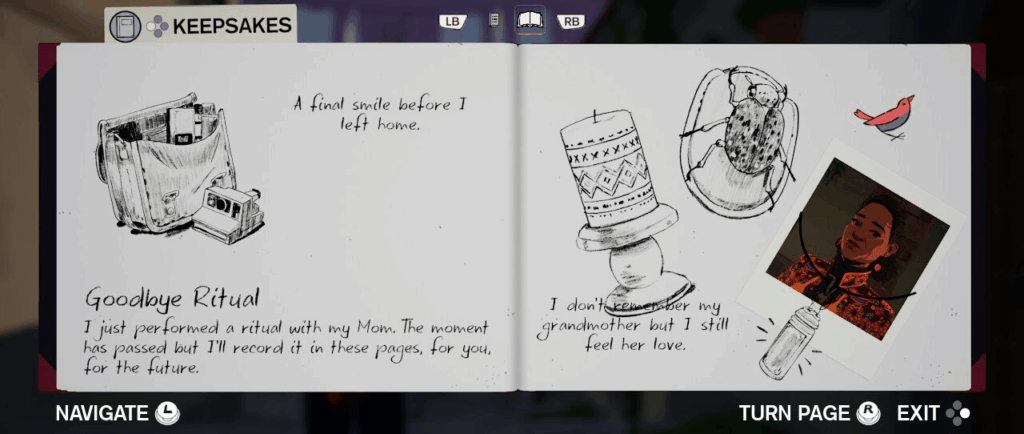 KEEPSAKES
LB
RB
A final smile before I
left home.
Goodbye Ritual
I just performed a ritual with my Mom. The moment
has passed but I'll record it in these pages, for you,
for the future.
I don't remember my
grandmother but I still
feel her love.
NAVIGATE L
TURN PAGE R EXIT